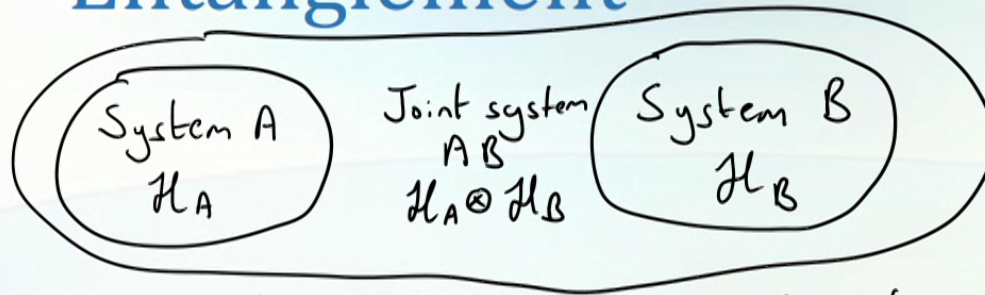 Entanglement
System A
ℋA
Joint system
AB
ℋA⊗ℋB
System B
ℋB